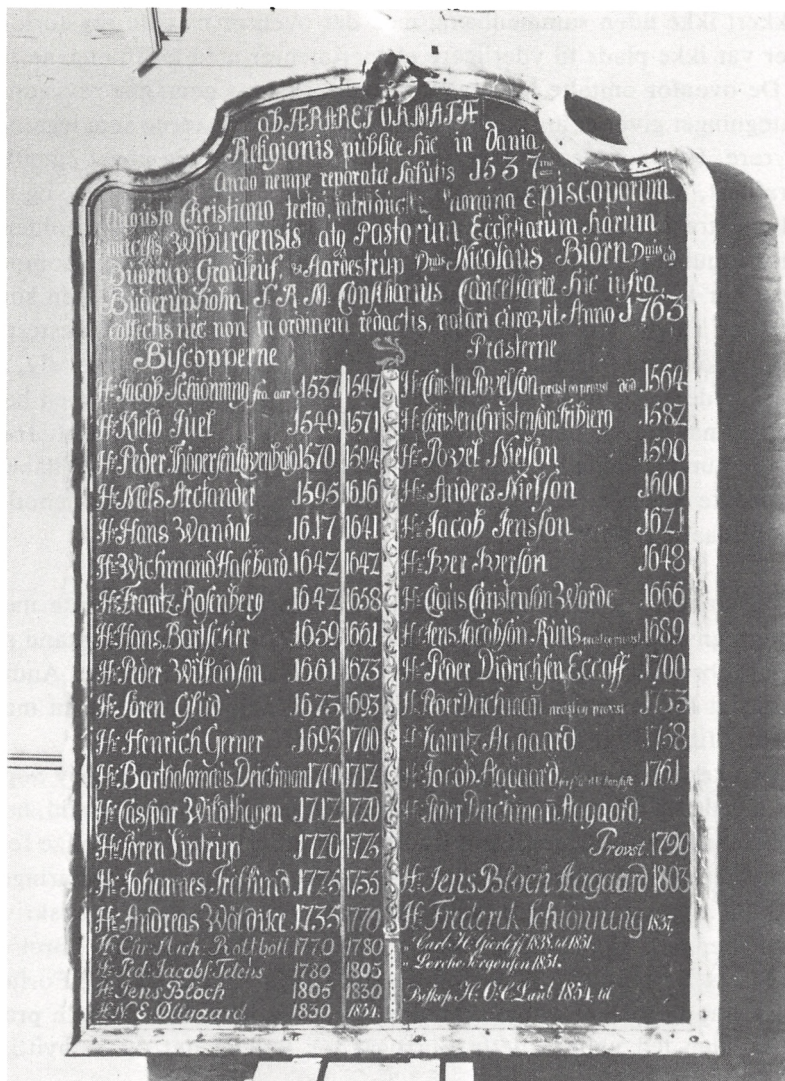 ob ÆRÆ REFORMATÆ
Religionis publice hic in Dania,
Anno nempe reparatæ Salutis 1537
Augusto Christiano tertio, introductæ, nomina Episcoporum
Wiburgensis atq Pastorum Ecclesiarum harum
Buderup, Grauleuf, & Aardestrup Dnus Nicolaus Biörn Dnus ad
Buderupholm S.R.M. Consiliarius Cancellariæ hic infra
collectis nec non in ordinem redactis, notari curavit Anno 1763
Biscopperne
Hr Jacob Schiönning fra aar 1537 1547
Hr Kield Juel 1549 1571
Hr Peder Thögersen Lovenbalg 1570 1594
Hr Niels Arctander 1595 1616
Hr Hans Wandal 1617 1641
Hr Wichmand Hasebard 1642 1642
Hr Frantz Rosenberg 1642 1658
Hr Hans Bartscher 1659 1661
Hr Peder Willadson 1661 1673
Hr Sören Glud 1673 1693
Hr Henrich Gerner 1693 1700
Hr Bartholomæus Deichman 1700 1712
Hr Caspar Wildhagen 1712 1720
Hr Sören Lintrup 1720 1725
Hr Johannes Trellund 1725 1735
Hr Andreas Wöldike 1735 1770
Hr Chr. Mich. Rottböll 1770 1780
Hr Ped. Jacobs Tetens 1780 1805
Hr Jens Bloch 1805 1830
Hr N. E. Öllgaard 1830 1854
Præsterne
Hr Christen Povelson præst og provst död 1564
Hr Christen Christenson Fribierg 1582
Hr Povel Nielson 1590
Hr Anders Nielson 1600
Hr Jacob Jensson 1621
Hr Iver Iverson 1648
Hr Claus Christenson Worde 1666
Hr Jens Jacobson Ruus præst og provst 1689
Hr Peder Didrichsen Eccoff 1700
Hr Peder Deichman præst og provst 1733
Hr Aagaard 1758
Hr Jacob Aagaard 1761
Hr Peder Deichman Aagaard,
Provst 1790
Hr Jens Bloch Aagaard 1803
Hr Frederik Schiönnung 1837,
" Carl H. 1838 til 1851.
" Lerche Jörgensen 1851.
Biskop H. O. C. Laub 1854 til